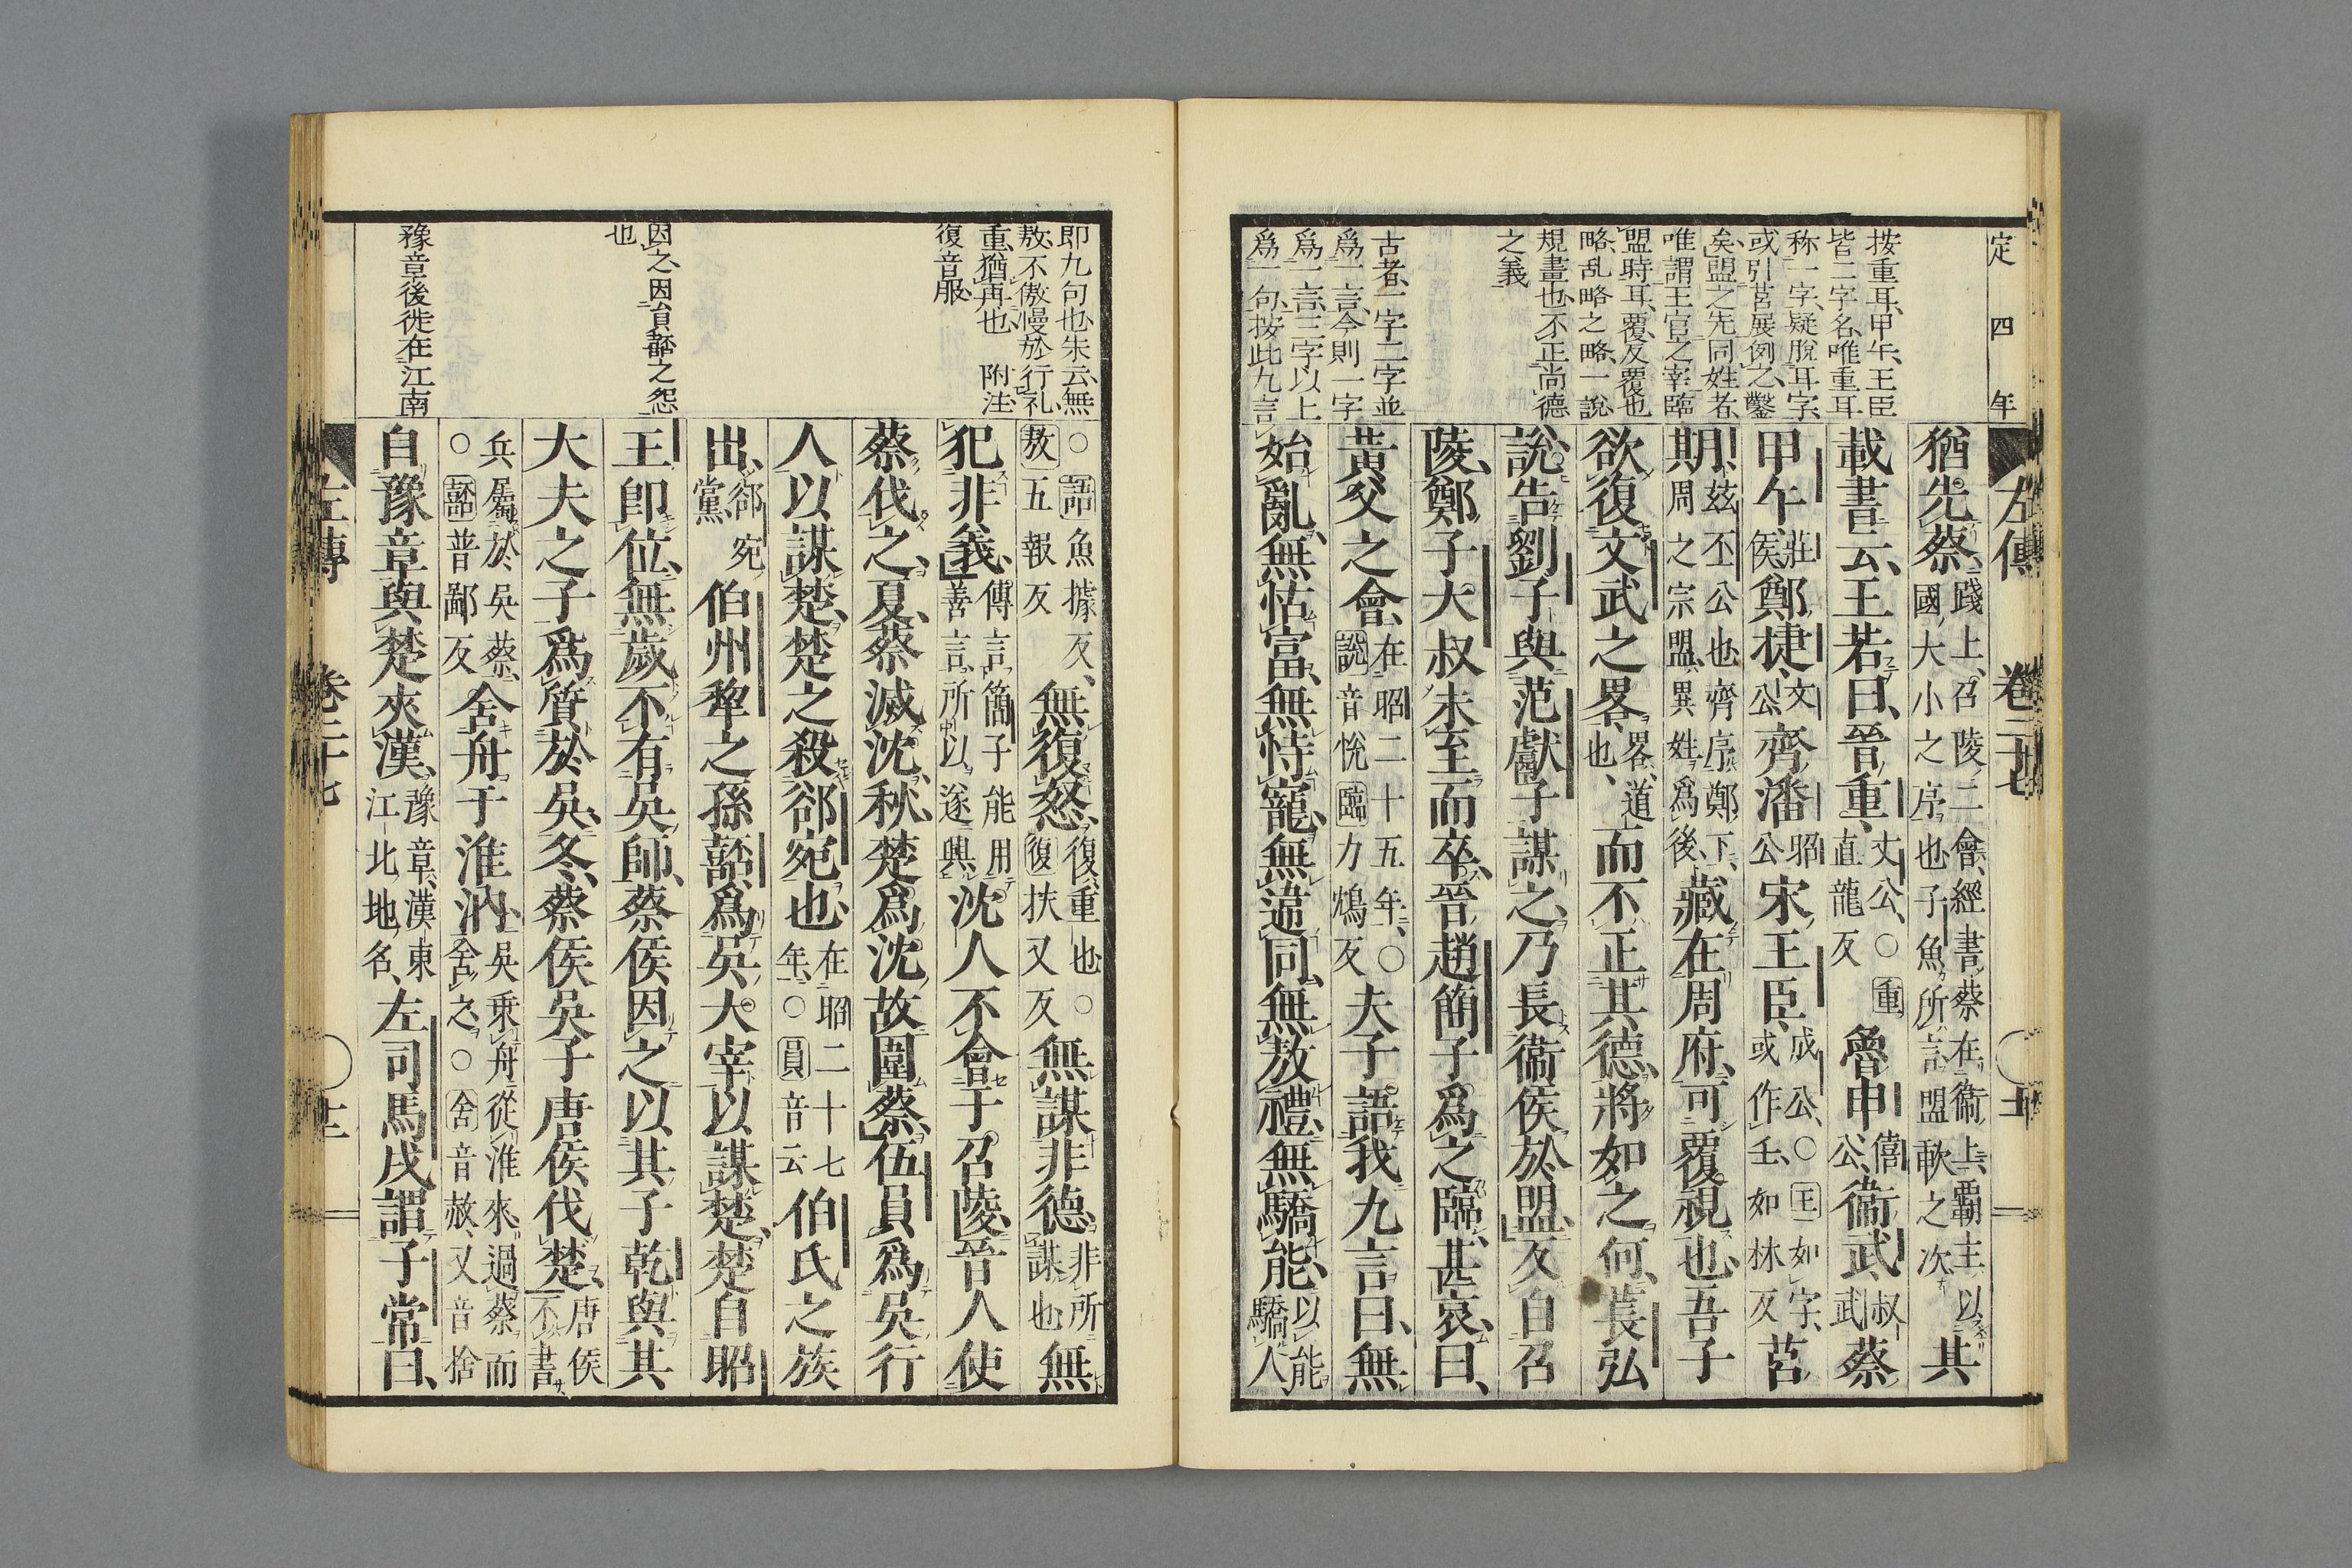 定四年
左傳 卷二十七
按重耳、甲午、王臣
皆二字名、唯重耳
称一字、疑脫耳字、
或引莒展例之、鑿
矣、盟之先同姓者、
唯謂王官之宰臨
盟時耳、覆反覆也
略、乱略之略、一說
規畫也、不正尚德
之義
古者、一字二字並
爲一言、今則一字
爲一言、三字以上
爲一句、按此九言
猶先蔡、踐上、召陵二會、經書蔡在衞上、霸主以國大小之序也、子魚所言、盟歃之次其
載書云、王若曰、晉重、文公、○重直龍反魯申、僖公、衞武、叔武蔡
甲午、莊侯鄭捷、文公、齊潘、昭公宋王臣、成公、○王如字、或作壬、如林反莒
期、茲丕公也、齊序鄭下、周之宗盟、異姓爲後、藏在周府、可覆視也、吾子
欲復文武之畧、畧、道也、而不正其德、將如之何、萇弘
說、告劉子、與范獻子謀之、乃長衞侯於盟、反自召
陵、鄭子大叔未至而卒、晉趙簡子爲之臨、甚哀、曰、
黃父之會、在昭二十五年、○說音悅臨力鴆反夫子語我九言曰、無
始亂、無怙富、無恃寵、無違同、無敖禮、無驕能、以能驕人
即九句也、朱云、無
敖、不傲慢於行礼、
重、猶再也 附注
復音服
因之、因員嚭之怨
也
豫章後徙在江南
○語魚據反、敖五報反無復怒、復、重也、○復扶又反無謀非德、非所謀也無
犯非義、傳言簡子能用善言、所以遂興、沈人不會于召陵、晉人使
蔡伐之、夏、蔡滅沈、秋、楚爲沈故、圍蔡、伍員爲吳行
人以謀楚、楚之殺郤宛也、在昭二十七年、○員音云伯氏之族
出、郤宛黨伯州犂之孫嚭、爲吳大宰以謀楚、楚自昭
王即位、無歲不有吳師、蔡侯因之、以其子乾與其
大夫之子爲質於吳、冬、蔡侯吳子唐侯伐楚、唐侯不書、
兵屬於吳蔡、○嚭普鄙反舍舟于淮汭、吳乘舟從淮來、過蔡而舍之、○舍音赦、又音捨
自豫章與楚夾漢、豫章、漢東江北地名、左司馬戌謂子常曰、
左傳 卷二十七 十二